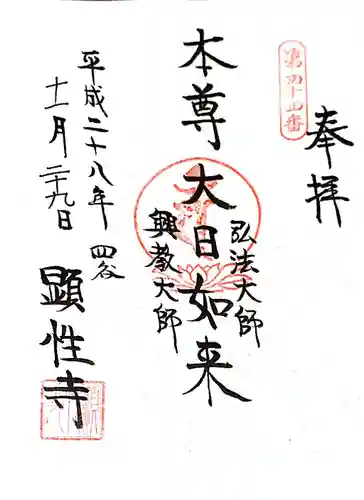 奉拝
弘法大師
本尊大日如来
興教大師
平成二十八年
十一月二十九日
四谷
顕性寺